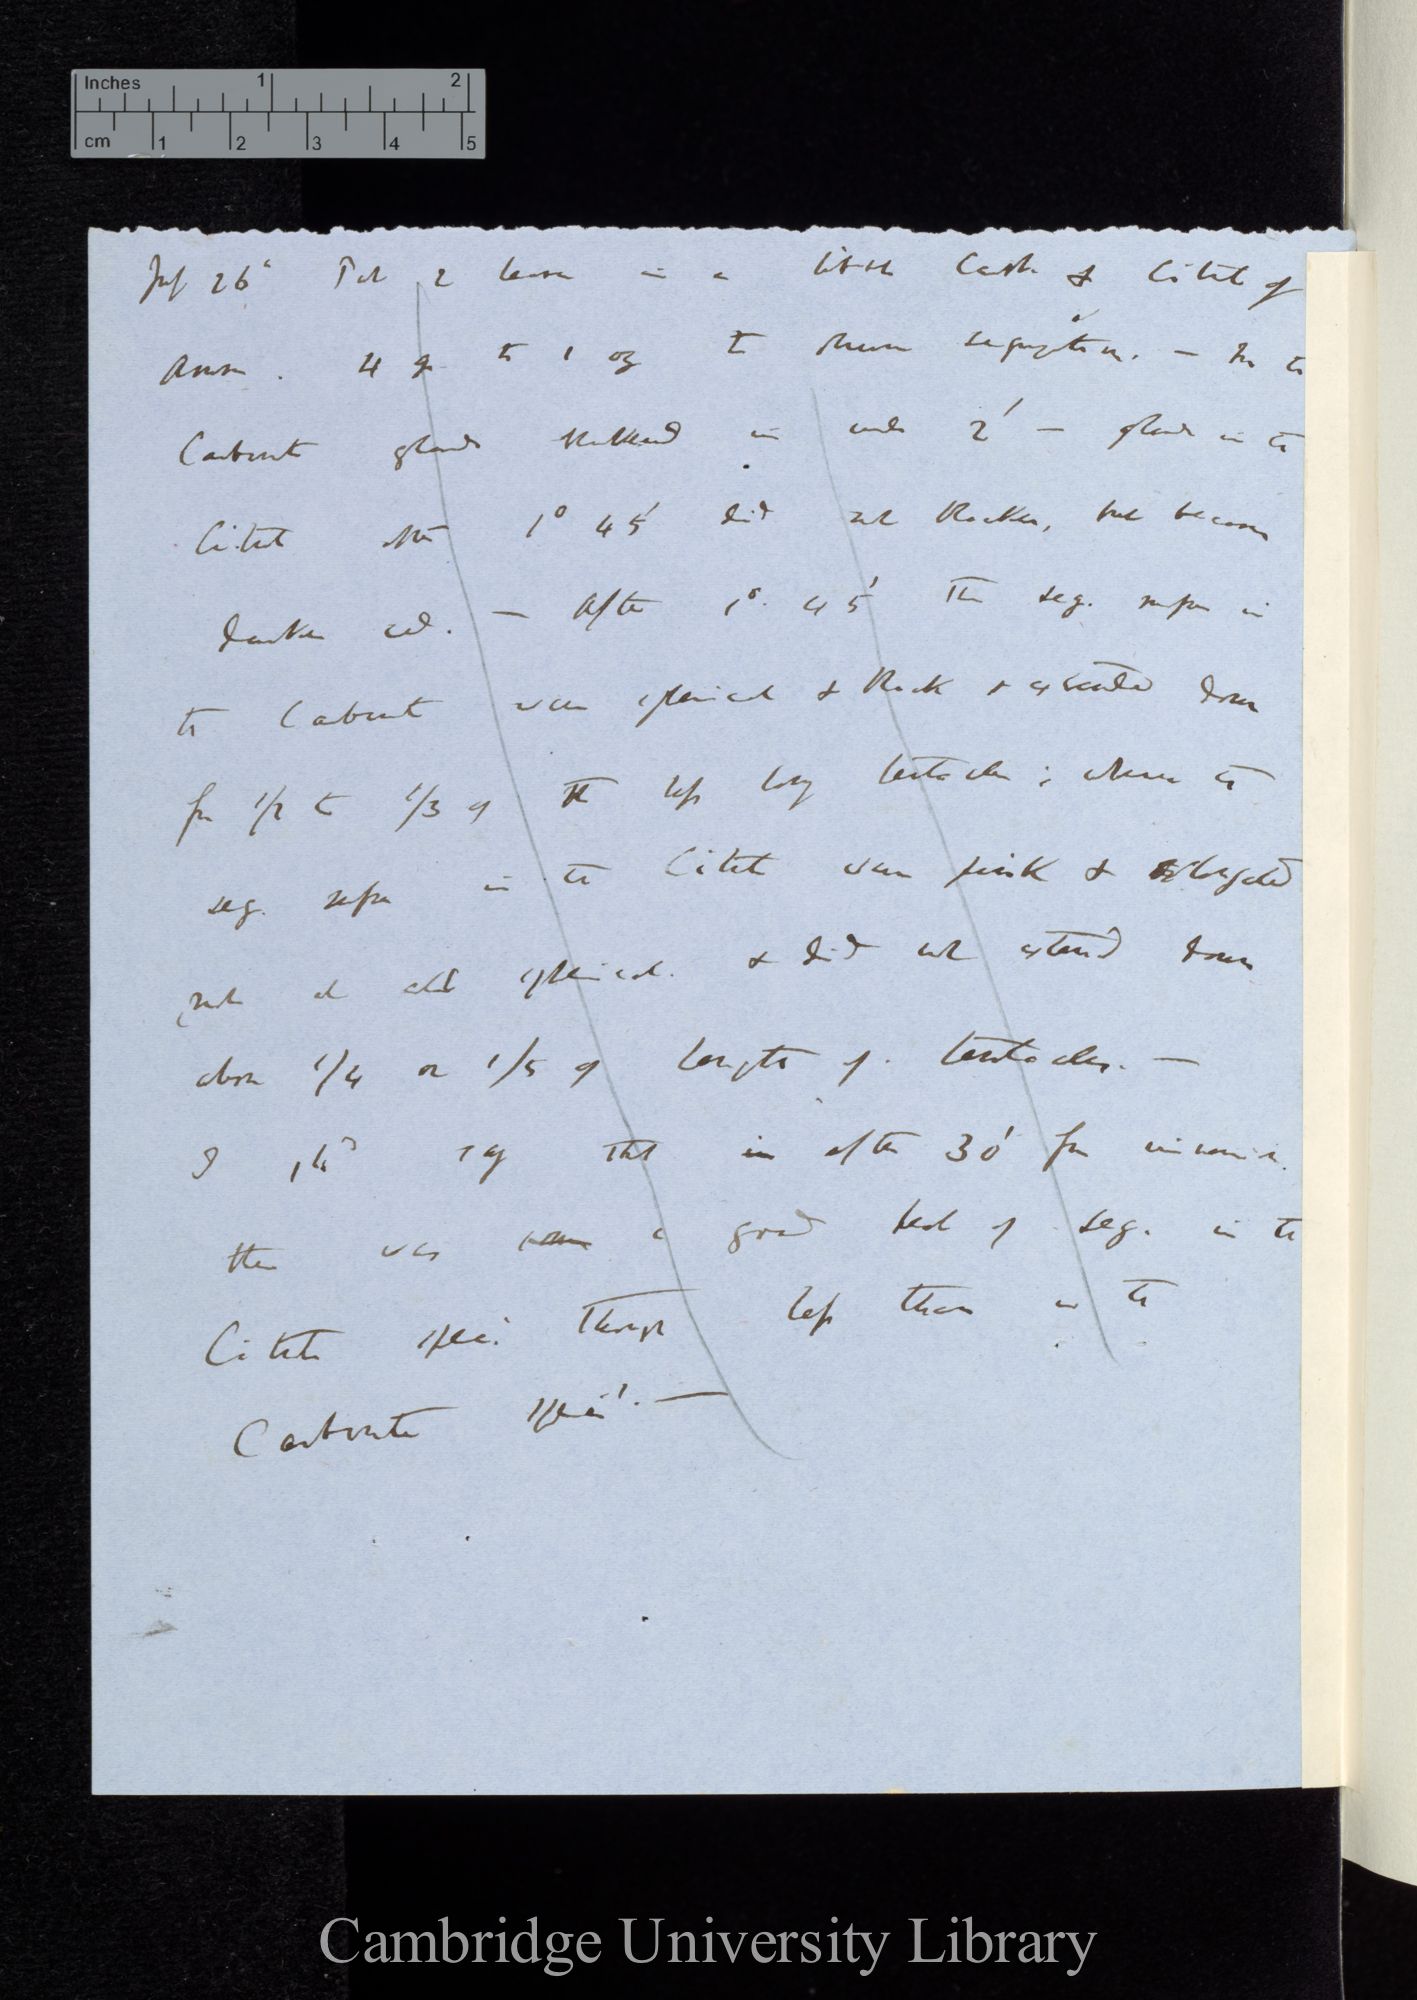 Inches 1 2
cm 1 2 3 4 5
July 26th Put 2 leaves in a little Carb & Citrate of
Ammon. 4 gr to 1 oz to observe segregation. — In the
Carbonate glands blackened in under 2' — glands in the
Citrate after 1° 45' did not blacken, but become
darker red. — After 1°. 45' the seg. in
the Carbonate was spherical & thick & extended down
for 1/2 to 1/3 of the less long tentacles; whereas the
seg. in the Citrate was pink & elongated
not at all spherical. & did not extend down
above 1/4 or 1/5 of length of tentacles. —
I shd say that in after 30' from immersion.
there was a good deal of seg. in the
Citrate speci. though less than in the
Carbonate speci'. —
Cambridge University Library